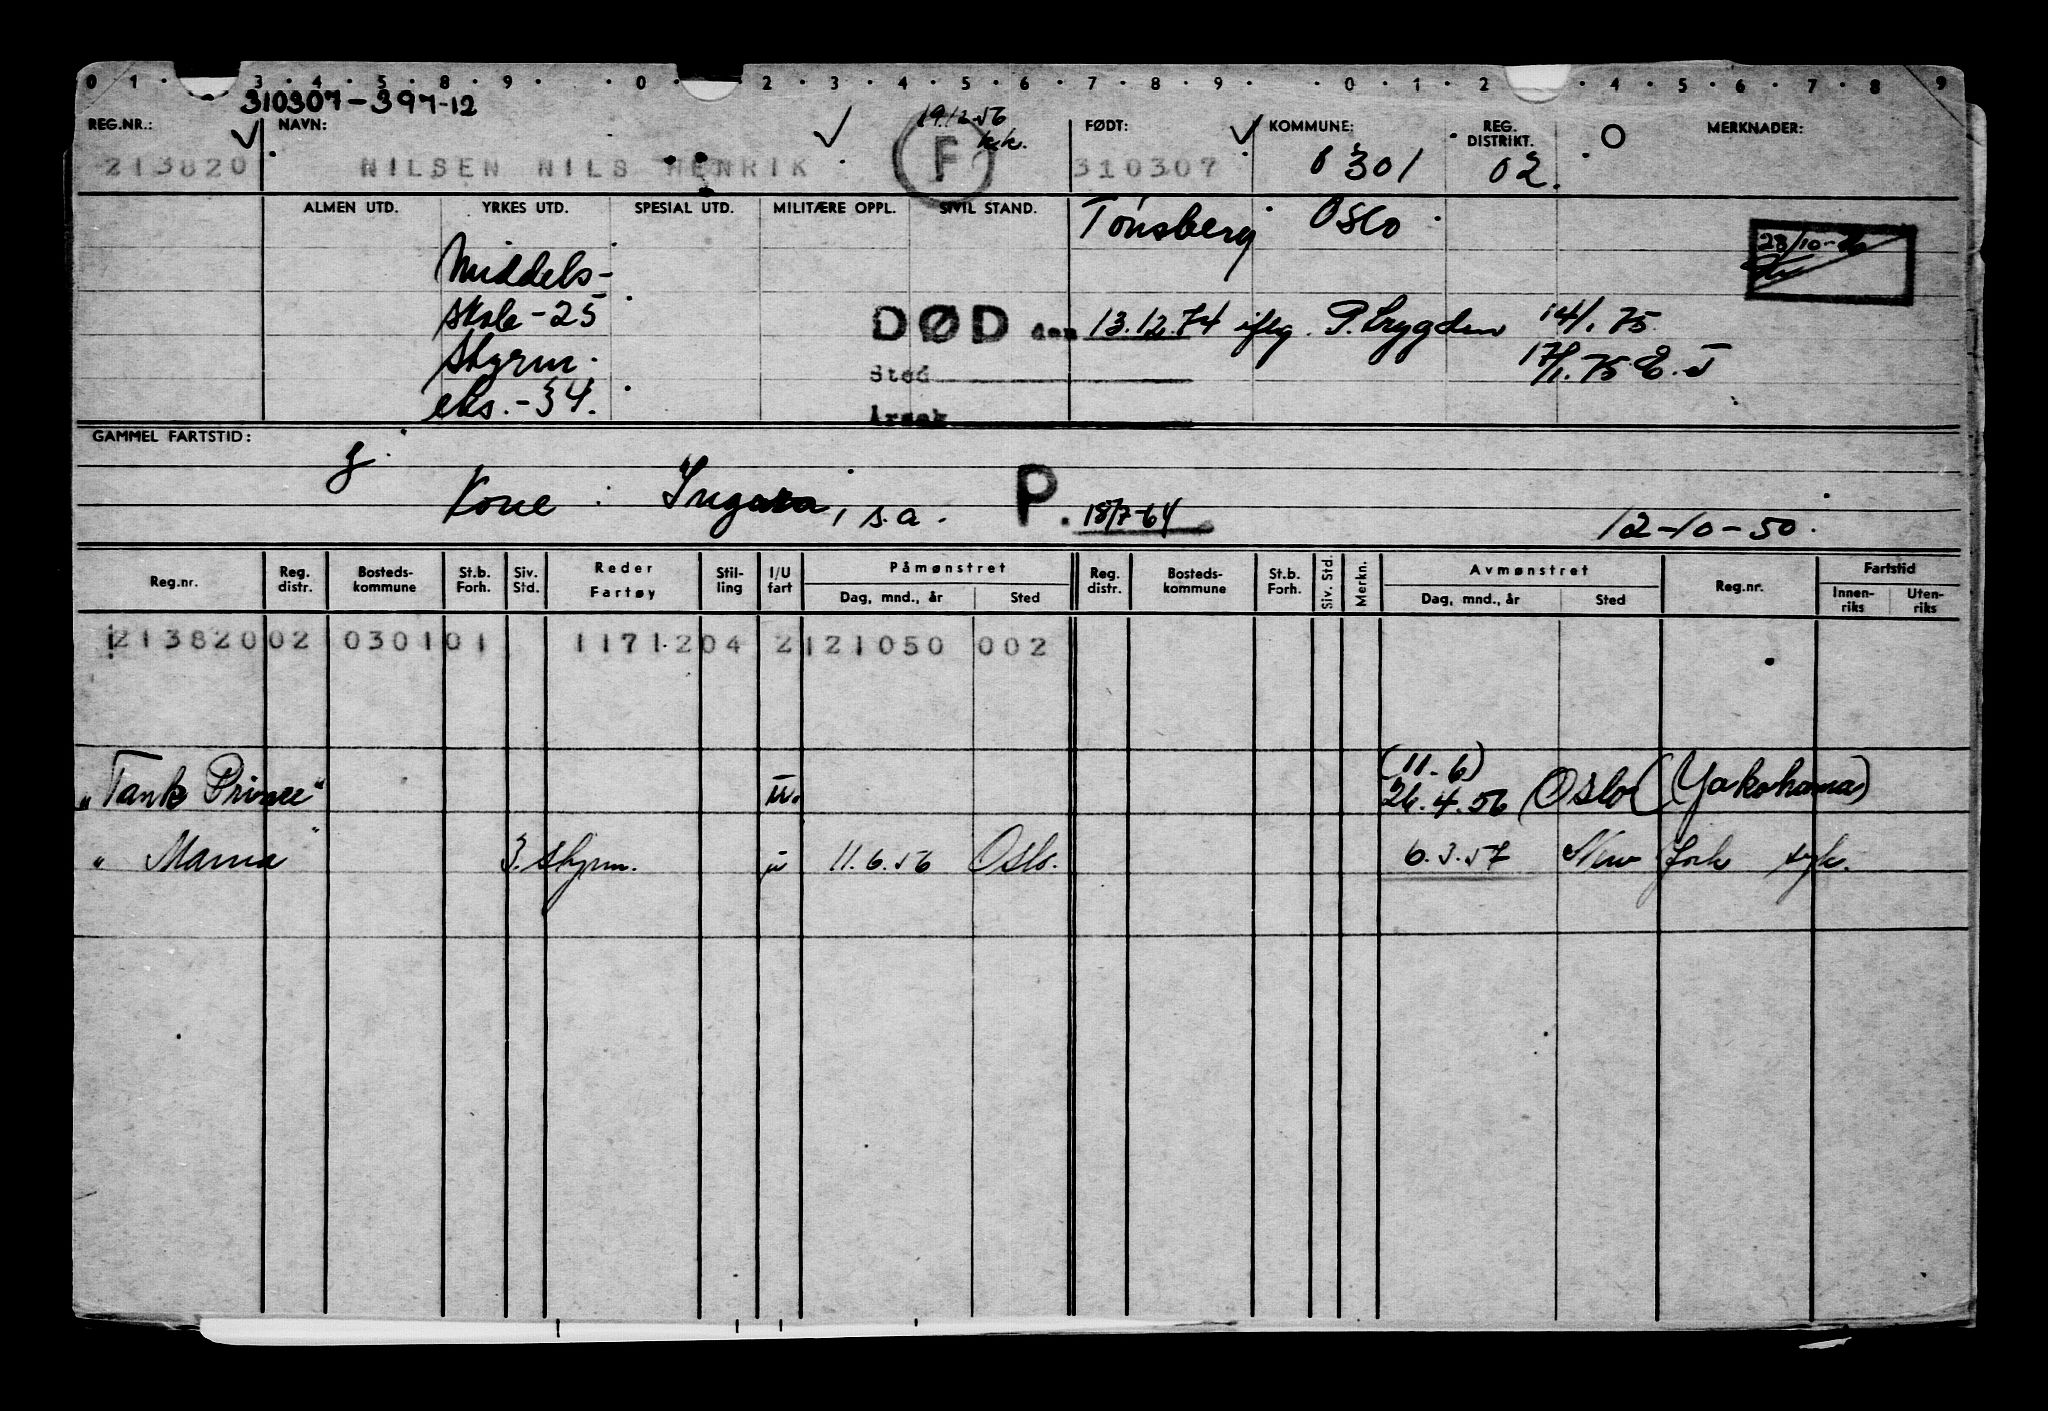 0 1 · 3 · 4 · 5 · 8 · 9 · · 0 · 2 · 3 · 4 · 5 · 6 · 7 · 8 · 9 · · 0 · 1 · 2 · 4 · 5 · 6 · 7 · 8 9
310307-397-12
19.12.56
k.k.
REG.NR.: NAVN: FØDT: KOMMUNE: REG. DISTRIKT. MERKNADER:
213820 NILSEN NILS HENRIK F 310307 0301 02.
ALMEN UTD. YRKES UTD. SPESIAL UTD. MILITÆRE OPPL. SIVIL STAND. Tönsberg Oslo
Middels-
skole-25
Styrm.
eks.-34.
DØD den 13.12.74 iflg. P. Trygden 14/1.75
17/1.75 E.J
Sted
Årsak
GAMMEL FARTSTID:
Kone: s.a. P. 18/7-64 12-10-50.
Reg.nr. Reg. distr. Bosteds-kommune St.b. Forh. Siv. Std. Reder Fartøy Stil-ling I/U fart Påmønstret Dag, mnd., år Sted Reg. distr. Bosteds-kommune St.b. Forh. Siv. Std. Merkn. Avmønstret Dag, mnd., år Sted Reg.nr. Fartstid Innen-riks Uten-riks
213820 02 0301 01 1171204 2 121050 002
"Tank Prince" u. (11-6) 26.4.56 Oslo (Yokohama)
" Marna " 3. styrm. u 11.6.56 Oslo. 6.3.57 New York syk.